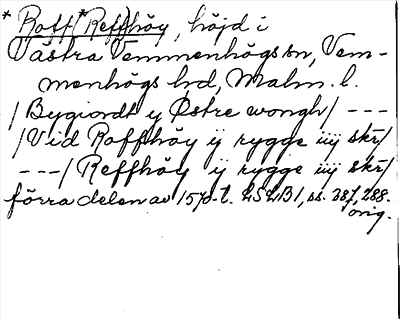 * Roff (* Reff)höy, höjd i
Västra Vemmenhögs sn, Vem-
menhögs hd, Malm. l.
/ Bygiordt y Østre wongh / ---
/ Vid Roffhöy ij rygge iiij skr /
--- / Reffhöy ij rygge iiij skr /
förra delen av 1570-t. LSLB1, ss. 387, 288.
orig.